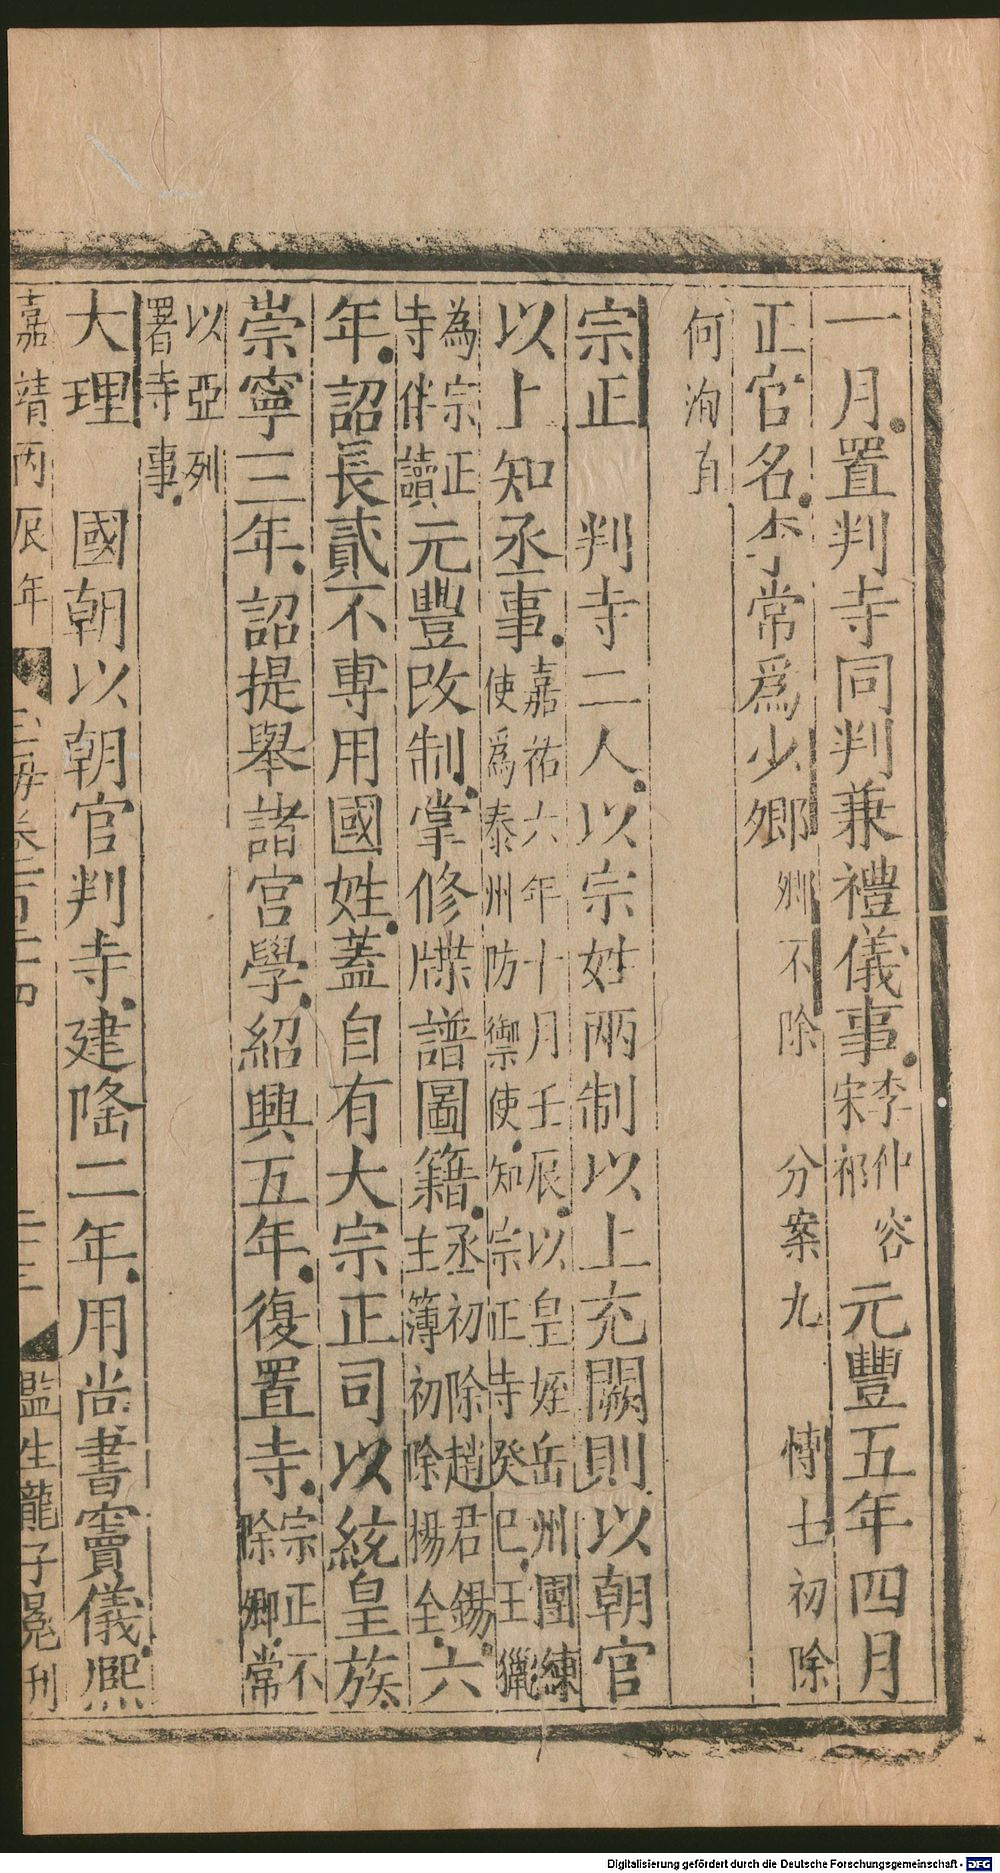 一月置判寺同判兼禮儀事李仲容宋祁元豐五年四月
正官名李常爲少卿卿不除 分案九 博士初除
何洵直
宗正 判寺二人以宗姓兩制以上充闕則以朝官
以上知丞事嘉祐六年十月壬辰以皇姪岳州團練使爲泰州防禦使知宗正寺癸巳王獵
為宗正寺伴讀元豐改制掌修牒譜圖籍丞初除趙君錫主簿初除楊全六
年詔長貳不專用國姓蓋自有大宗正司以統皇族
崇寧三年詔提舉諸宮學紹興五年復置寺宗正不除卿常
以亞列署寺事
大理 國朝以朝官判寺建隆二年用尚書竇儀熈
嘉靖丙辰年 玉海卷一百二十四 二十三 監生龍子冕刋
Digitalisierung gefördert durch die Deutsche Forschungsgemeinschaft - DFG